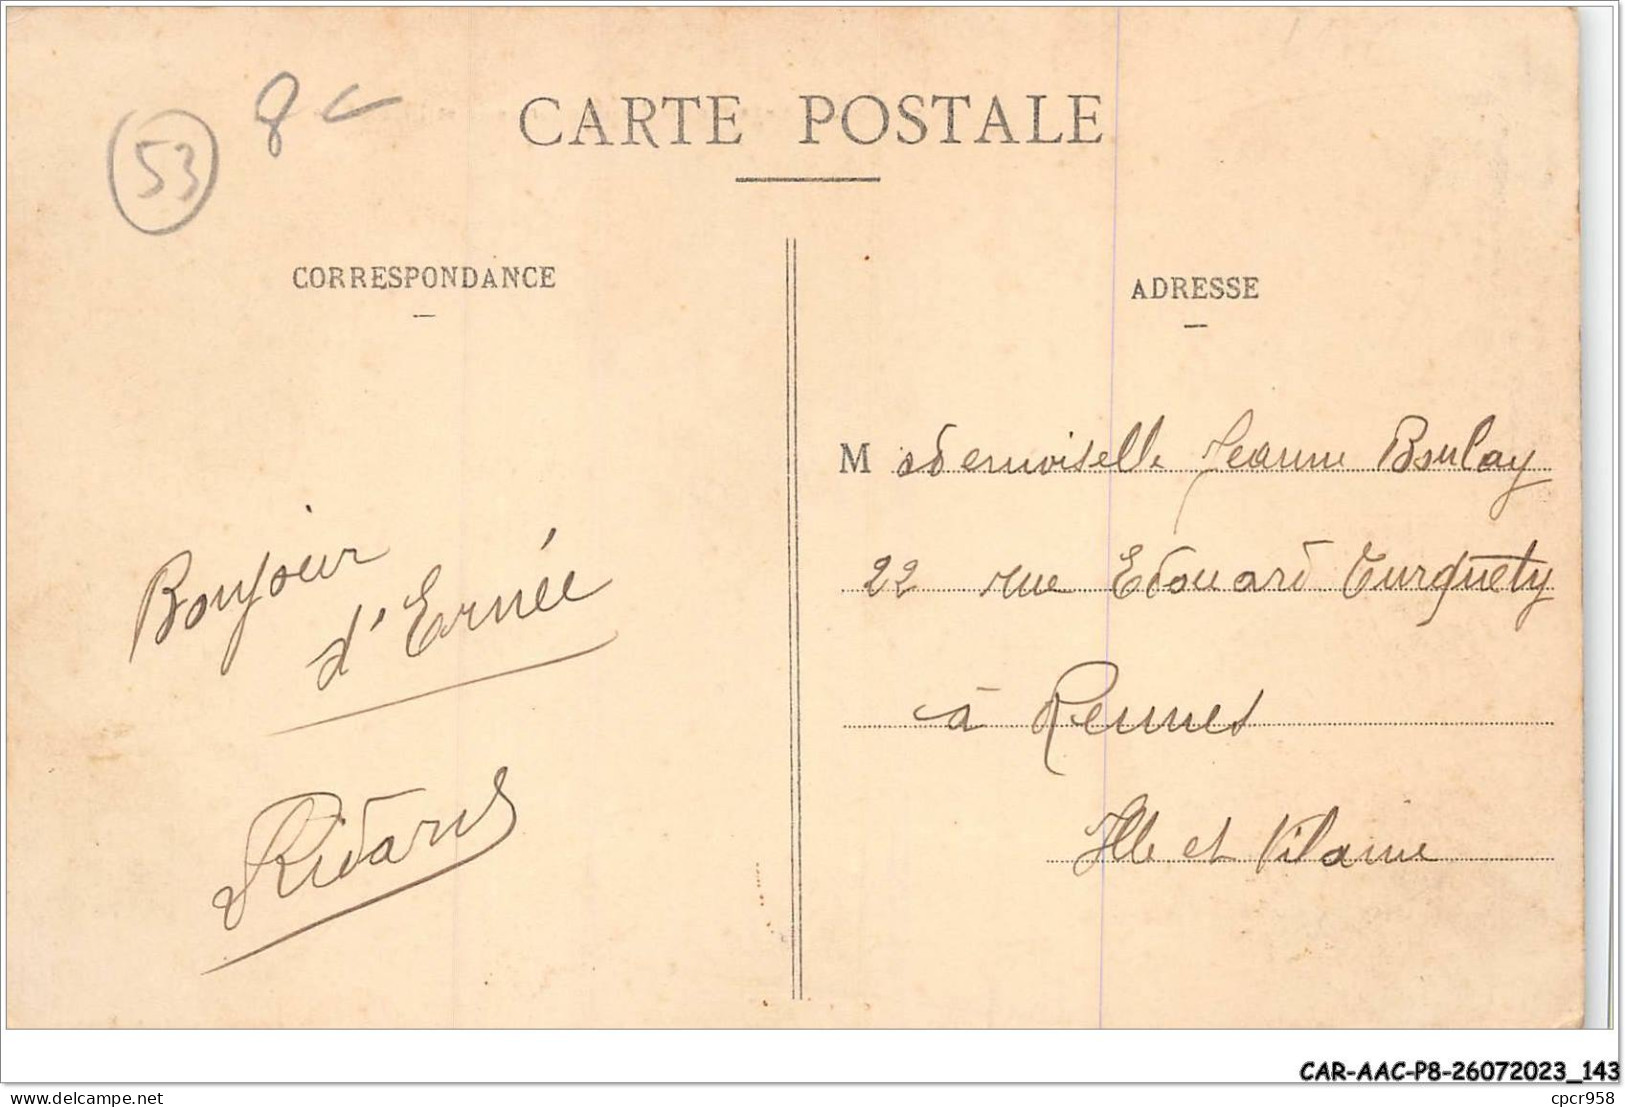 53
8c
CARTE POSTALE
CORRESPONDANCE
Bonjour
d'Ernée
ADRESSE
Mademoiselle Jeanne Boulay
22 rue Edouard Turquety
à Rennes
Ille et Vilaine
CAR-AAC-P8-26072023_143
cpcr958